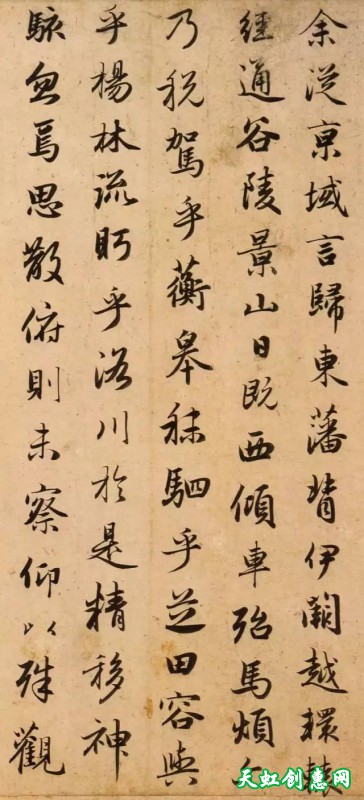 余從京域言歸東藩背伊闕越轘轅
經通谷陵景山日既西傾車殆馬煩尓
乃税駕乎蘅皋秣駟乎芝田容與
乎楊林流眄乎洛川於是精移神
駭忽焉思散俯則未察仰以殊觀
天虹创意网